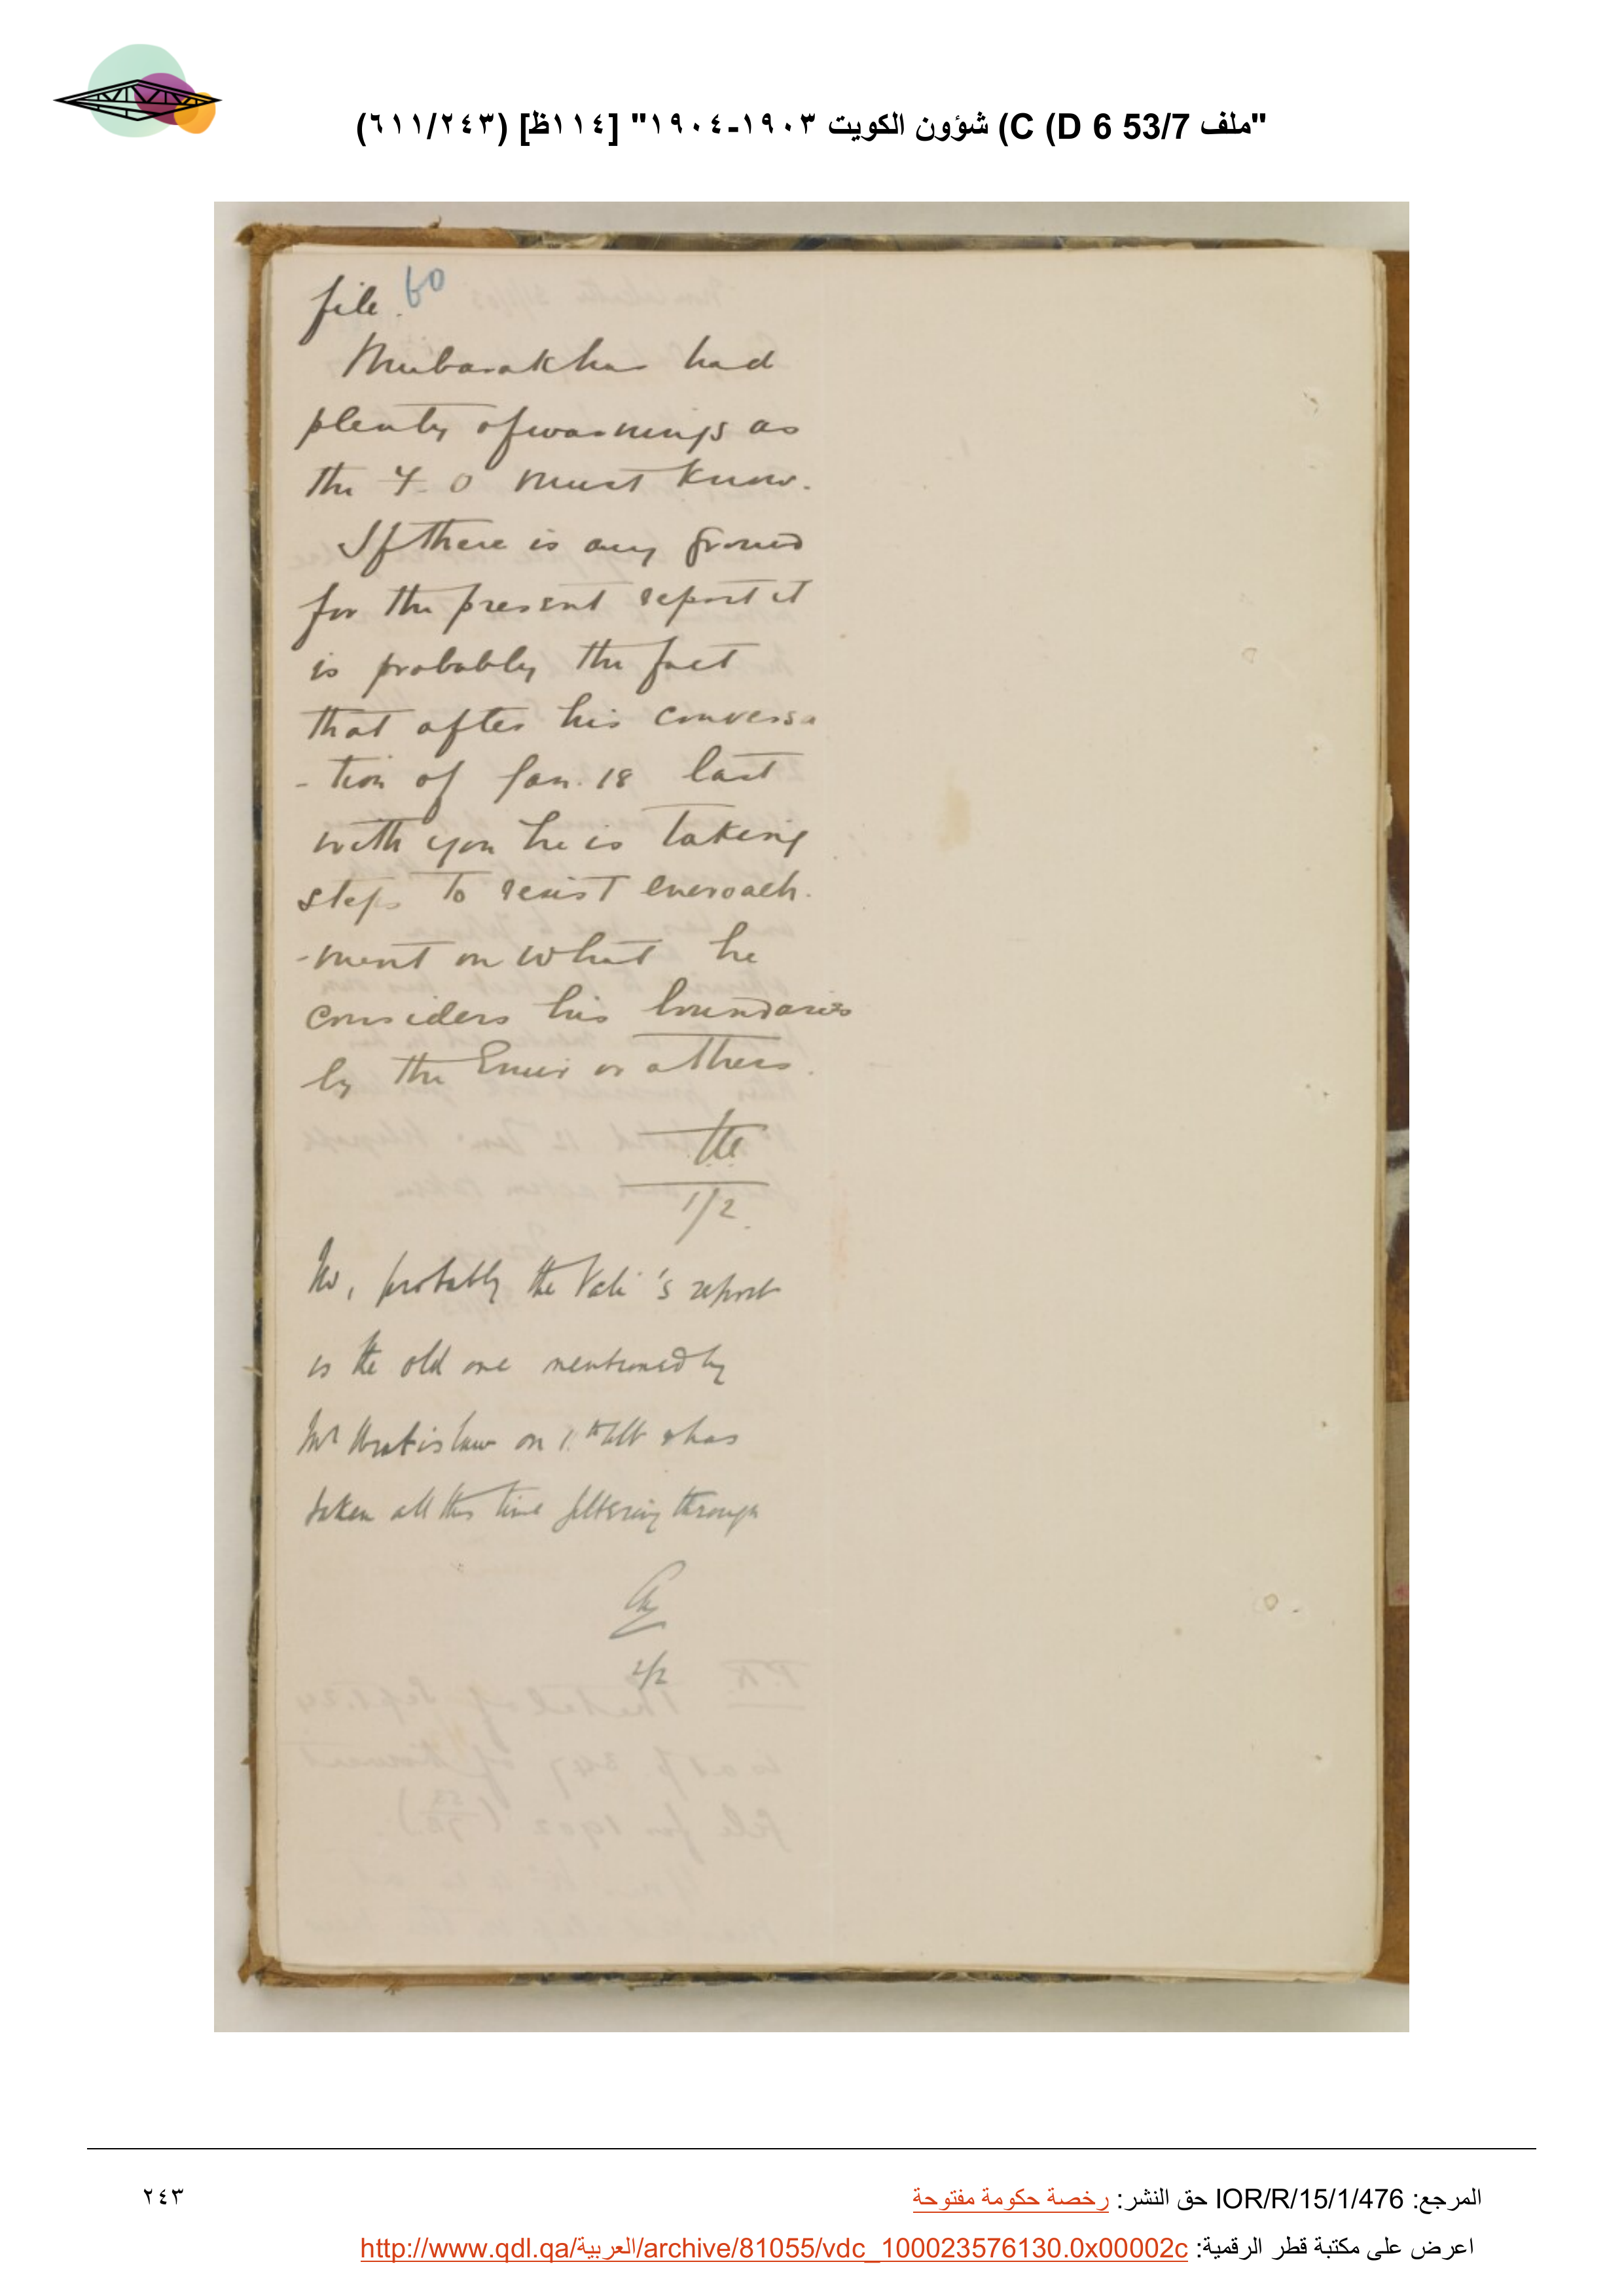 "ملف 53/7 D 6) C) شؤون الكويت ١٩٠٣-١٩٠٤" [١١٤ظ] (٦١١/٢٤٣)
60
file.
Mubarak has had
plenty of warnings as
the F.O must know.
If there is any ground
for the present report it
is probably the fact
that after his conversa
-tion of Jan. 18 last
with you he is taking
steps to resist encroach.
-ment on what he
considers his boundaries
by the Emir or others.
1/2.
No, probably the Vali's report
is the old one mentioned by
Mr Wratislaw on ult & has
taken all this time filtering through
2/2
المرجع: IOR/R/15/1/476 حق النشر: رخصة حكومة مفتوحة
٢٤٣
اعرض على مكتبة قطر الرقمية: http://www.qdl.qa/العربية/archive/81055/vdc_100023576130.0x00002c